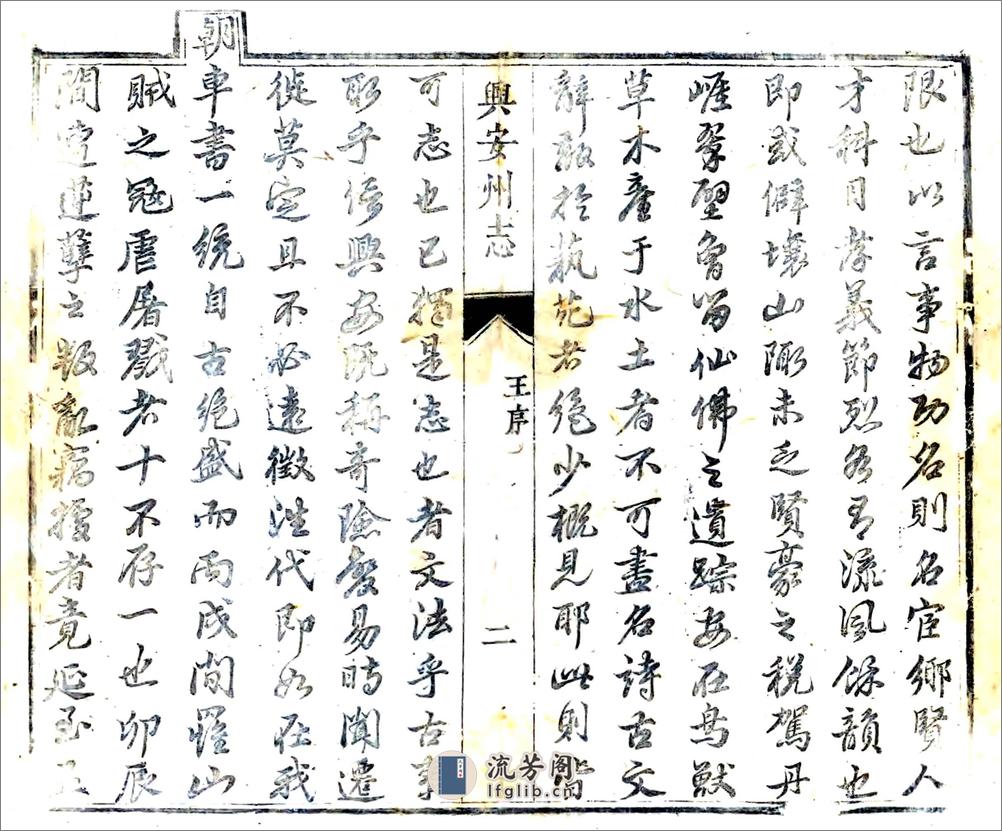 限也以言事物功名則名宦鄉賢人
才科目孝義節烈有流風餘韻也
即或僻壤山陬未乏賢豪之稅駕丹
崖翠壁曾留仙佛之遺踪安在鳥獸
草木產于水土者不可盡名詩古文
辭散於藝苑者絕少概見耶此則
興安州志
王序
二
可志也已獨是志也者文法乎古事
取乎備興安既稱奇險易時聞遷
徙莫定且不必遠徵往代即如在我
朝車書一統自古絕盛而丙戌間羅山
賊之冦虐屠戮者十不存一也卯辰
間孽之叛亂竊據者竟延至
流芳阁
lfglib.cn